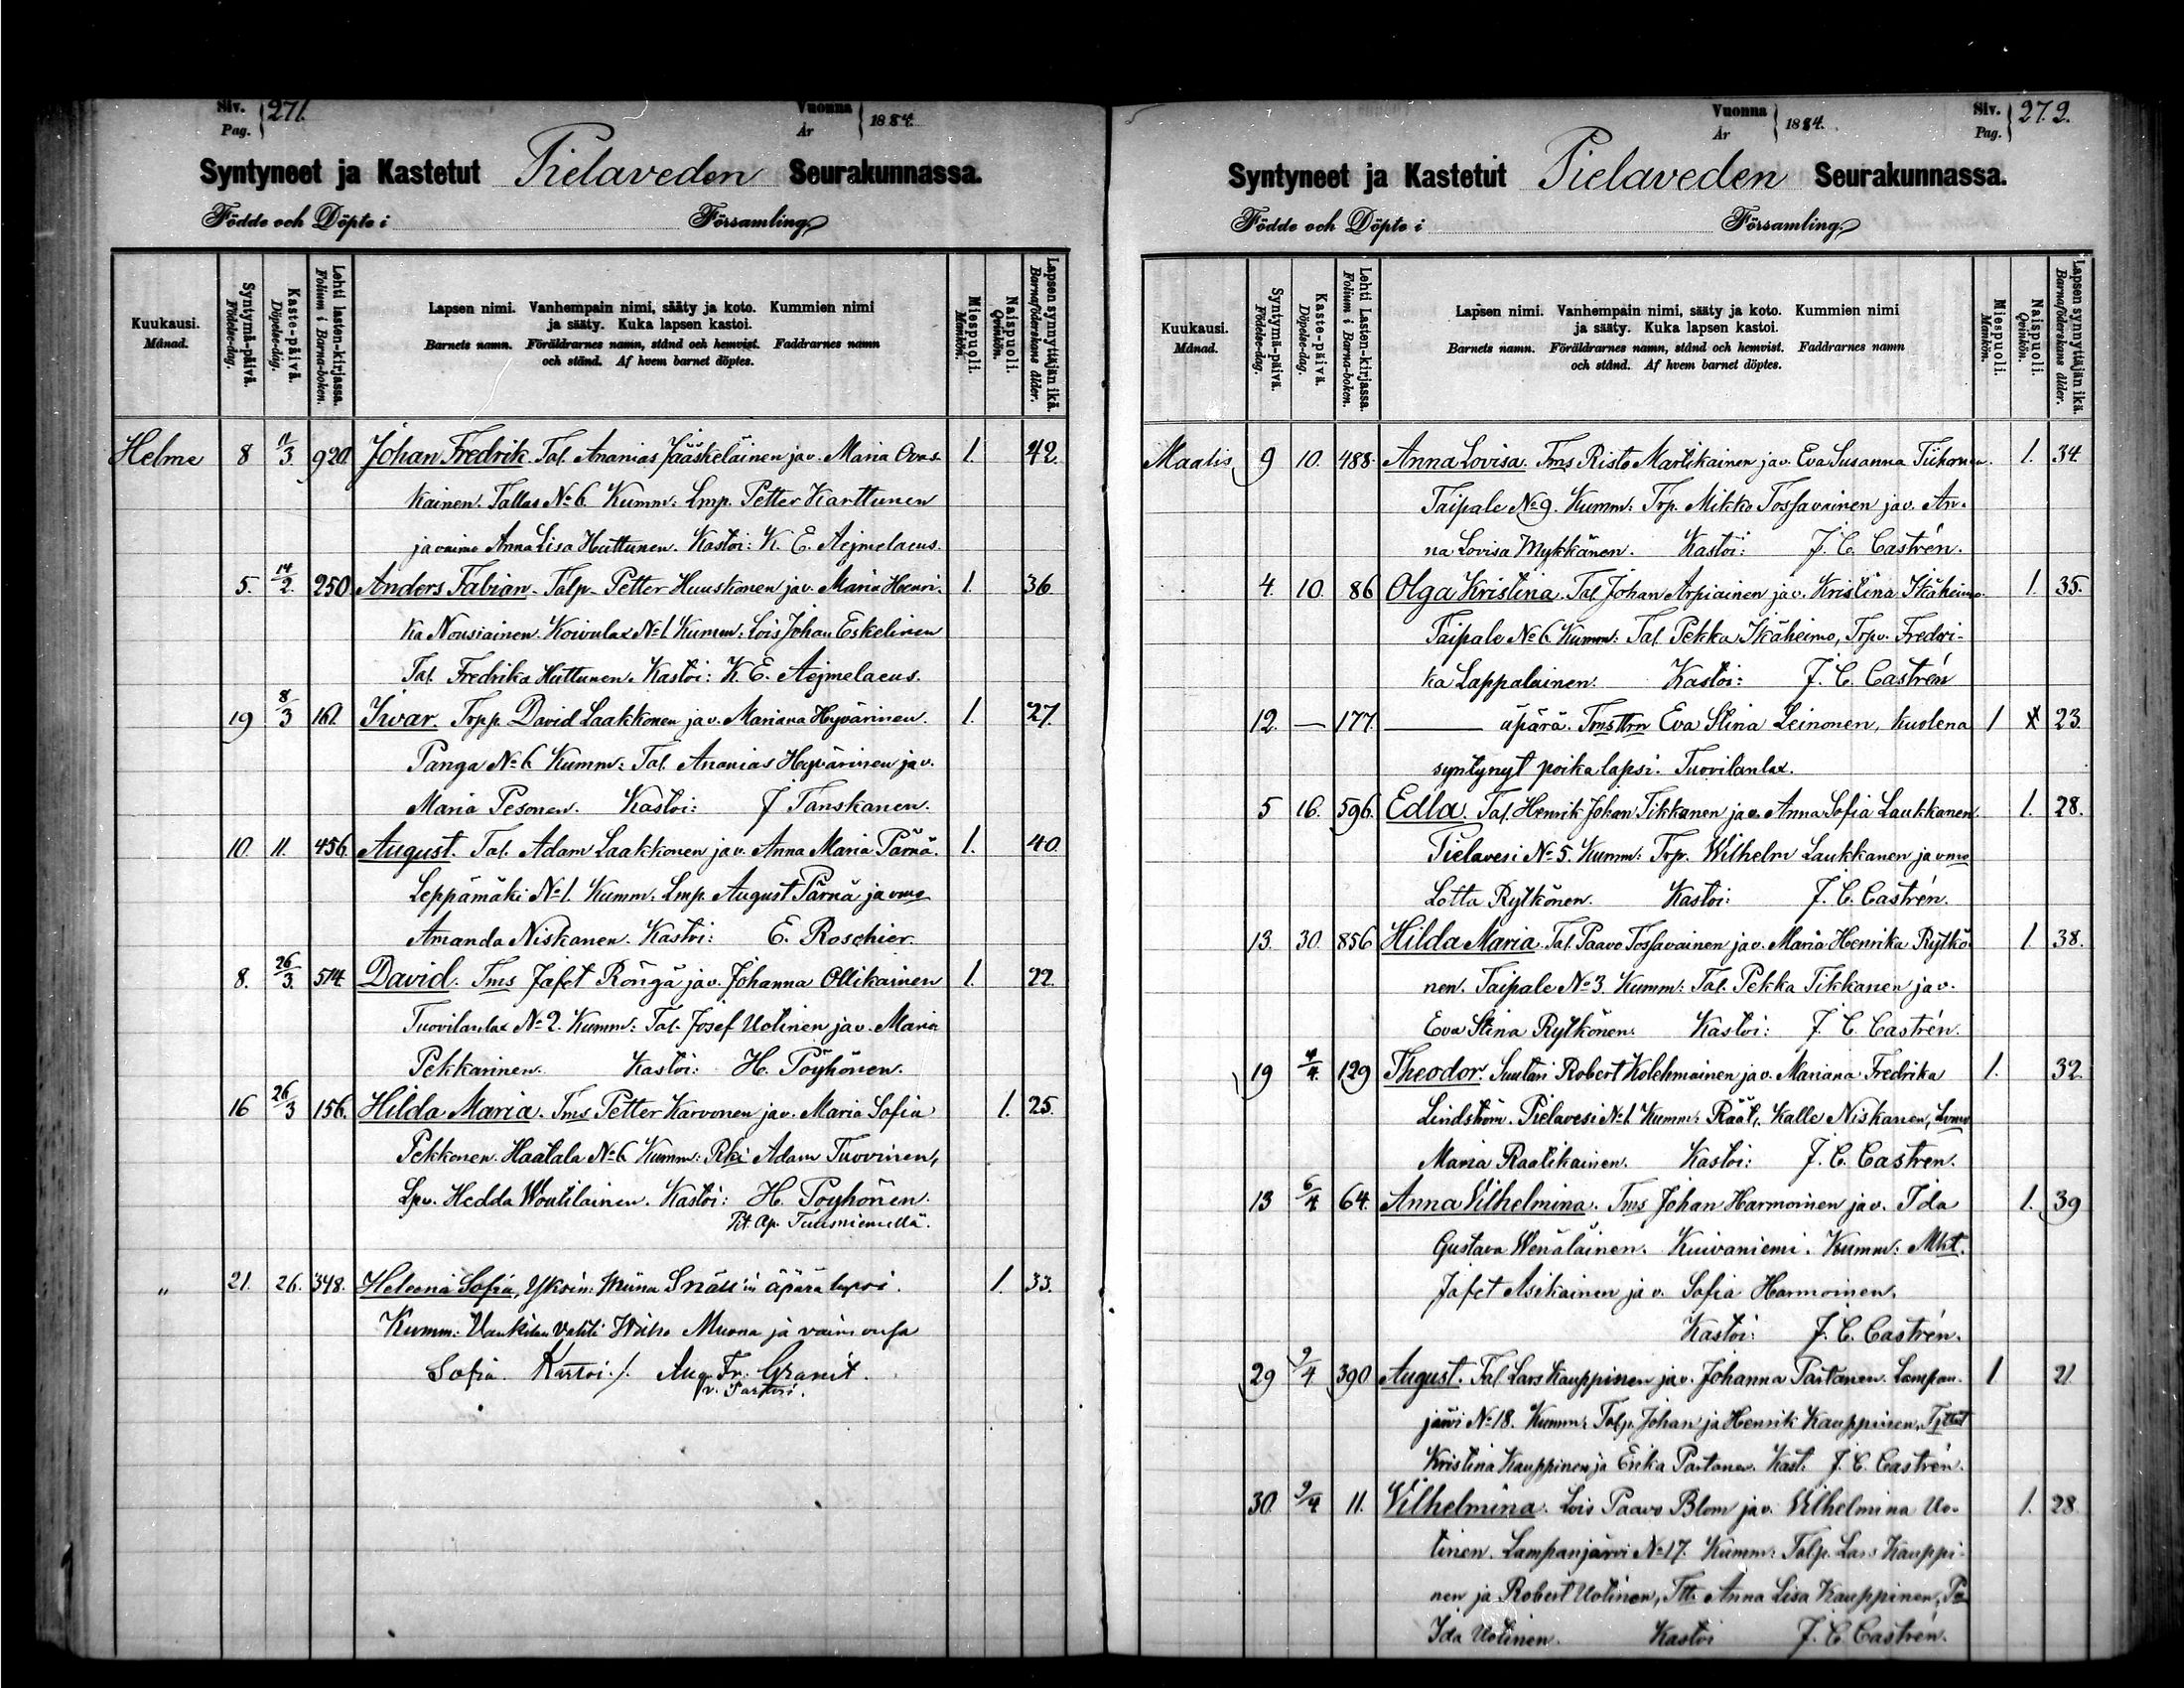 Siv. Pag. 271.
Vuonna År 1884.
Syntyneet ja Kastetut Pielaveden Seurakunnassa.
Födde och Döpte i Församling.
Kuukausi. Månad.
Syntymä-päivä. Födelse-dag.
Kaste-päivä. Döpelse-dag.
Lehti lasten-kirjassa. Folium i Barna-boken.
Lapsen nimi. Vanhempain nimi, sääty ja koto. Kummien nimi
ja sääty. Kuka lapsen kastoi.
Barnets namn. Föräldrarnes namn, stånd och hemvist. Faddrarnes namn
och stånd. Af hvem barnet döptes.
Miespuoli. Mankön.
Naispuoli. Qvinkön.
Lapsen synnyttäjän ikä. Barnaföderskans ålder.
Helme 8 11/3 920. Johan Fredrik. Tal. Ananias Jääskeläinen ja v. Maria Ovas- 1. 42.
kainen. Tallus No 6. Kumm: Lmp. Petter Karttunen
ja vaimo Anna Lisa Huttunen. Kastoi: K. E. Aejmelaeus.
5. 14/2. 250. Anders Fabian. Talp. Petter Huuskonen ja v. Maria Henri- 1. 36.
ka Nousiainen. Koivulax No 1. Kumm: Lois Johan Eskelinen
Tal. Fredrika Huttunen. Kastoi: K. E. Aejmelaeus.
19 8/3 161. Ivar. Trpp. David Laakkonen ja v. Mariana Hyvärinen. 1. 27.
Panga No 6. Kumm: Tal. Ananias Hyvärinen ja v.
Maria Pesonen. Kastoi: J Tanskanen.
10. 11. 456. August. Tal. Adam Laakkonen ja v. Anna Maria Pärnä. 1. 40.
Leppämäki No 1. Kumm: Lmp. August Pärnä ja vmo
Amanda Niskanen. Kastoi: E. Roschier.
8. 26/3. 514. David. Tms Jafet Röngä ja v. Johanna Ollikainen 1. 22.
Tuovilanlax No 2. Kumm: Tal. Josef Uotinen ja v. Maria
Pekkarinen. Kastoi: H. Pöyhönen.
16 26/3 156. Hilda Maria. Tms Petter Karvonen ja v. Maria Sofia 1. 25.
Pekkonen. Haatala No 6. Kumm: Rki Adam Tuovinen,
Lpv. Hedda Woutilainen. Kastoi: H. Pöyhönen.
Pit. Ap. Tuusniemellä.
„ 21. 26. 348. Heleena Sofia, Yksin: Miina Snäll'in äpärä lapsi. 1. 33.
Kumm: Vankilan Vahti Muona ja vaimonsa
Sofia. Kastoi: Aug. Fr. Granit.
v. Pastori.
Vuonna År 1884.
Siv. Pag. 272.
Syntyneet ja Kastetut Pielaveden Seurakunnassa.
Födde och Döpte i Församling.
Kuukausi. Månad.
Syntymä-päivä. Födelse-dag.
Kaste-päivä. Döpelse-dag.
Lehti Lasten-kirjassa. Folium i Barna-boken.
Lapsen nimi. Vanhempain nimi, sääty ja koto. Kummien nimi
ja sääty. Kuka lapsen kastoi.
Barnets namn. Föräldrarnes namn, stånd och hemvist. Faddrarnes namn
och stånd. Af hvem barnet döptes.
Miespuoli. Mankön.
Naispuoli. Qvinkön.
Lapsen synnyttäjän ikä. Barnaföderskans ålder.
Maalis 9 10. 488. Anna Lovisa. Tms Risto Martikainen ja v. Eva Susanna Tiihonen. 1. 34
Taipale No 9. Kumm: Trp. Mikko Tossavainen ja v. An-
na Lovisa Mykkänen. Kastoi: J. C. Castrén.
4. 10. 86 Olga Kristina. Tal. Johan Arpiainen ja v. Kristina Ikäheimo. 1. 35.
Taipale No 6. Kumm: Tal. Pekka Ikäheimo, Trpv. Fredri-
ka Lappalainen. Kastoi: J. C. Castrén
12. — 177. — äpärä. Tms Eva Stina Leinonen, kuolena 1 23.
syntynyt poika lapsi. Tuovilanlax.
5 16. 596. Edla. Tal. Henrik Johan Tikkanen ja v. Anna Sofia Laukkanen. 1. 28.
Pielavesi No 5. Kumm: Trp. Wilhelm Laukkanen ja vmo
Lotta Rytkönen. Kastoi: J. C. Castrén.
13. 30. 856 Hilda Maria. Tal. Paavo Tossavainen ja v. Maria Henrika Rytkö- 1. 38.
nen. Taipale No 3. Kumm: Tal. Pekka Tikkanen ja v.
Eva Stina Rytkönen. Kastoi: J. C. Castrén.
19 4/4. 129 Theodor. Suutari Robert Kolehmainen ja v. Mariana Fredrika 1. 32
Lindström. Pielavesi No 1. Kumm: Räät. Kalle Niskanen,
Maria Raatikainen. Kastoi: J. C. Castrén.
13 6/4 64. Anna Vilhelmina. Tms Johan Harmoinen ja v. Ida 1. 39
Gustava Wenäläinen. Kuivaniemi. Kumm: Mkt.
Jafet Asikainen ja v. Sofia Harmoinen.
Kastoi: J. C. Castrén.
29 9/4 390 August. Tal. Lars Kauppinen ja v. Johanna Partanen. Lampan- 1 21
järvi No 18. Kumm: Talp. Johan ja Henrik Kauppinen,
Kristina Kauppinen ja Erika Partanen. Kast. J. C. Castrén.
30. 9/4 11. Vilhelmina. Lois Paavo Blom ja v. Vilhelmina Uo- 1. 28
tinen. Lampanjärvi No 17. Kumm: Talp. Lars Kauppi-
nen ja Robert Uotinen, Ttt. Anna Lisa Kauppinen,
Ida Uotinen. Kastoi J. C. Castrén.